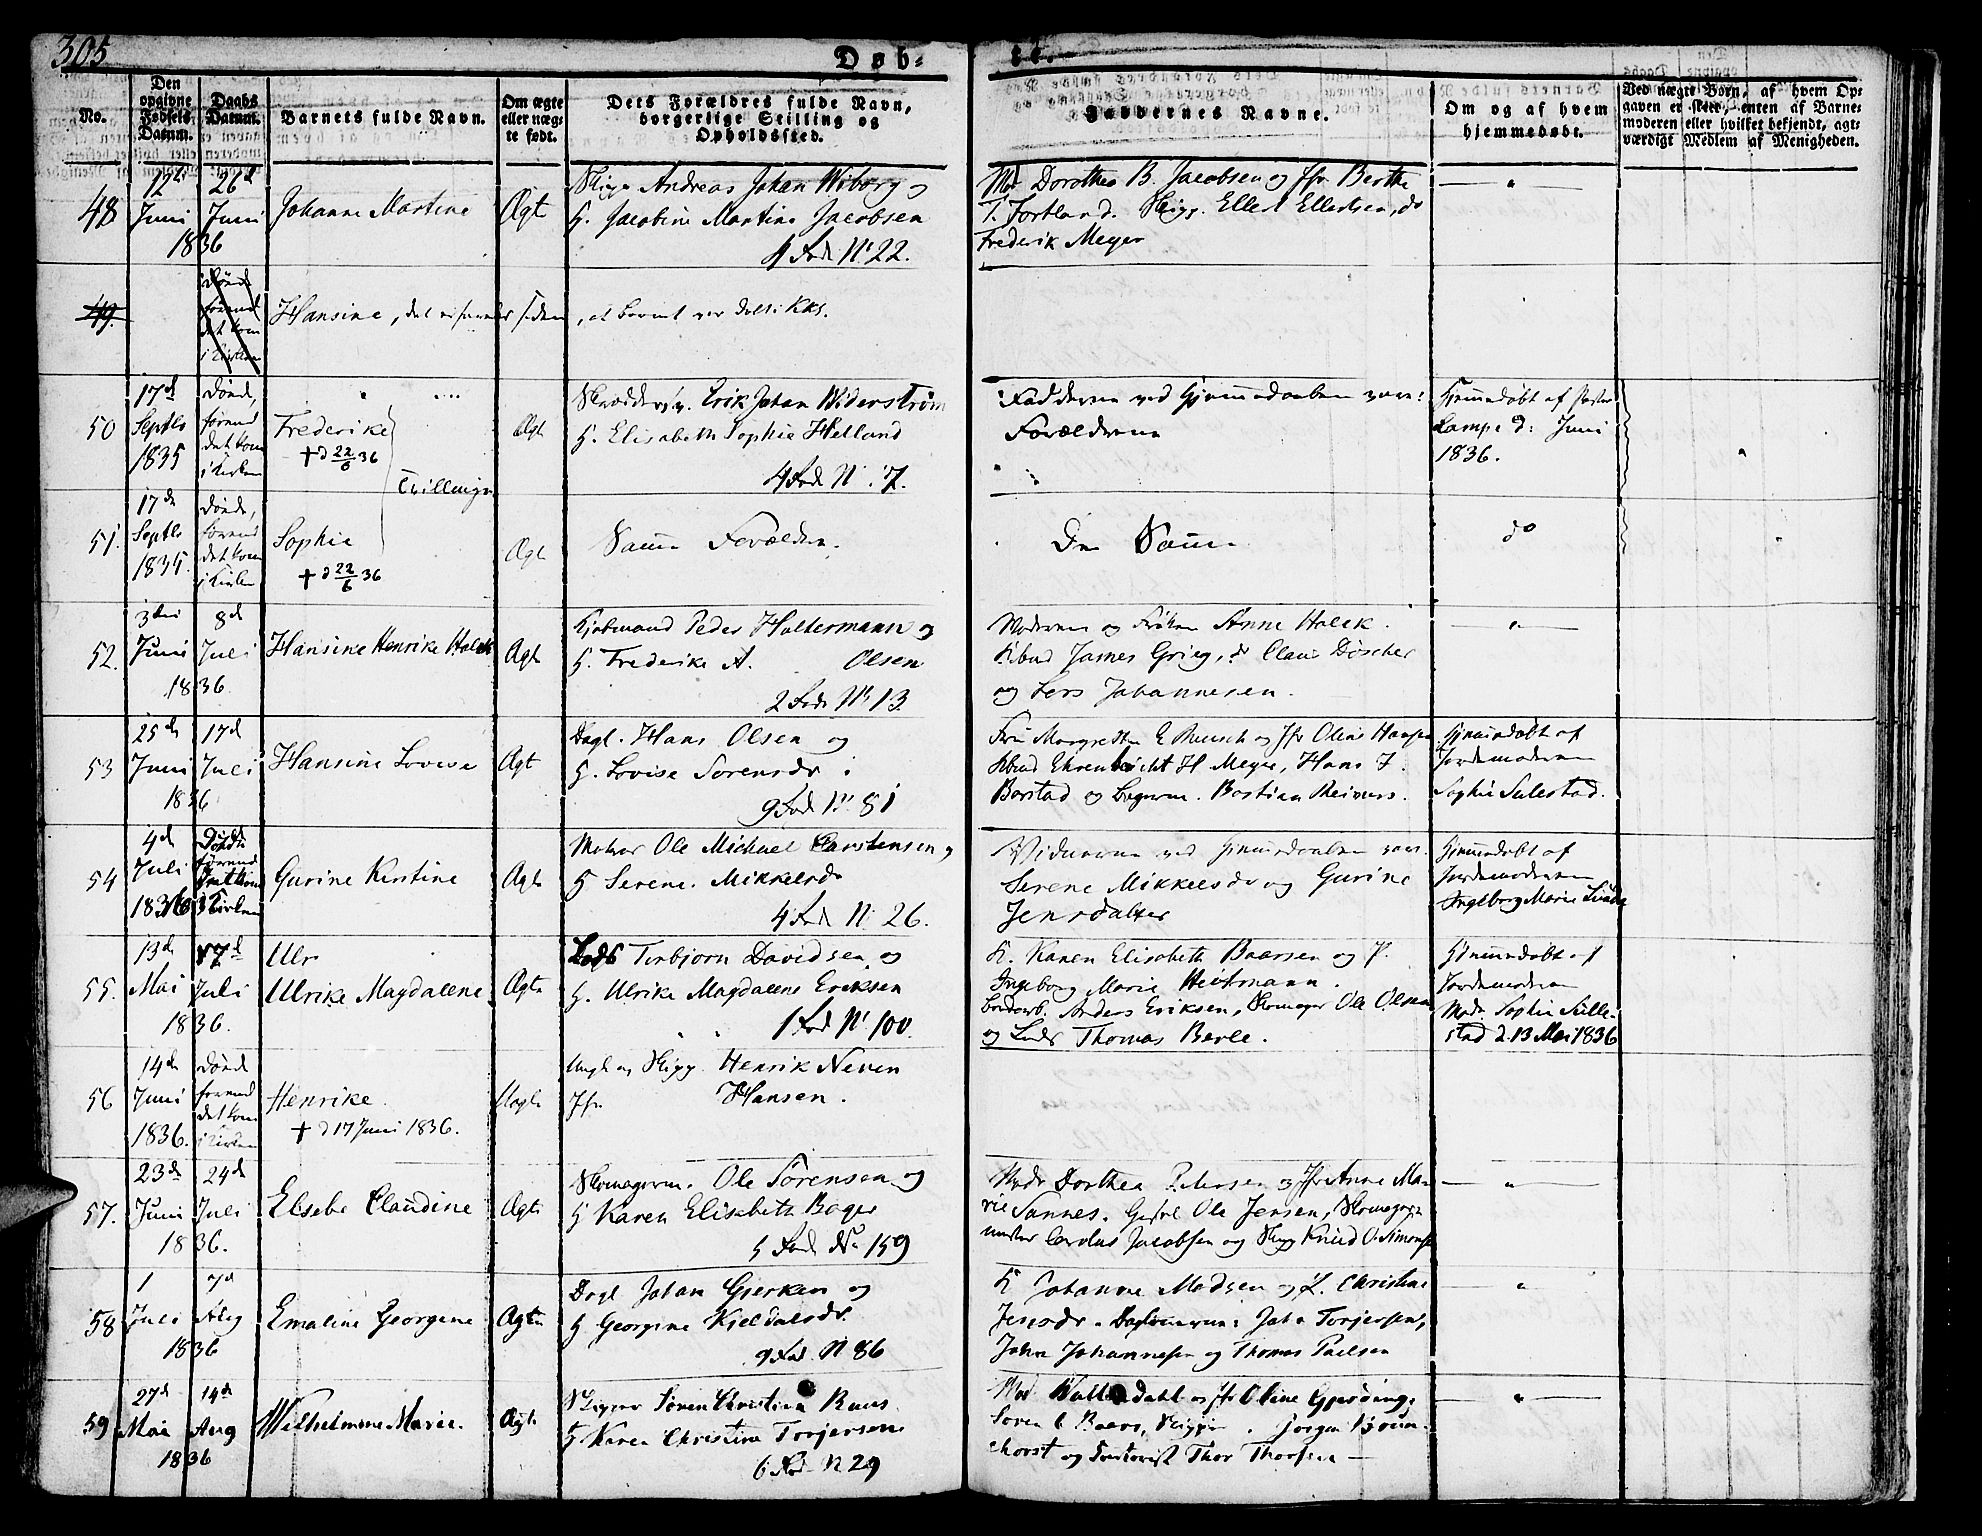 305
Døb-
te.
No.
Den opgivne Fødsels Datum.
Daabs Datum.
Barnets fulde Navn.
Om ægte eller uægte født.
Dets Forældres fulde Navn, borgerlige Stilling og Opholdssted.
Faddernes Navne.
Om og af hvem hjemmedøbt.
Ved uægte Born, af hvem Opgaven er skeet, enten af Barnemoderen eller hvilket bekjendt, agtværdigt Medlem af Menigheden.
48
12te Juni 1836
26d Juni
Johanne Martine
Ægt
Skipr Andreas Johan Wiborg og
H. Jacobine Martine Jacobsen
1 Fad N. 22.
Md. Dorothea B. Jacobsen og Jfr. Berthe
T. Jortland. Skipp. Ellert Ellertsen, do
Frederik Meyer
49.
Døde
førend
det kom
i Kirken
Hansine, det erfares siden, at barnet var
50
17d Septbr 1835
Døde,
førend
det kom
i Kirken
Frederike
† d 22/6 36
Tvillinger
Ægt
Erik Johan Widerstrøm
H. Elisabeth Sophie Helland
4 Fad N. 7.
Fadderne ved Hjemmedaaben vare:
Forældrene
Hjemmedøbt af Pastor
Lampe d: Juni
1836.
51.
17de Septbr 1835
Døde,
førend
det kom
i Kirken
Sophie
† d 22/6 36
Ægt
Samme Forældre.
De Samme
do
52.
3die Juni 1836.
8d Juli
Hansine Henrike Holck
Ægt
Kjøbmand Peder Haltermann og
H. Frederike A. Olsen
2 Fad N. 13
Moderen og Frøken Anne Holck.
Kbmd James Grieg, do Claus Døscher
og Lars Johannesen.
53
25de Juni 1836
17d Juli
Hansine Lovise
Ægt
Dagl. Hans Olsen og
H. Lovise Sørensdr.
9 Fad N. 81
Fru Margrethe E Reusch og Jfr Oline Hansen
Kbmd Ehrenbricht H Meyer, Hans J.
Borstad og Bagersv. Bastian Reimers.
Hjemmedøbt af
Jordemoderen
Sophie Sulestad.
54
4d Juli 1836
Døde
førend
det kom
i Kirken
Gurine Kirstine
Ægte
Matros Ole Michael Carstensen og
H Serene Mikkelsdr
4 Fad N. 26.
Vidnerne ved Hjemmedaaben vare
Serene Mikkelsdr og Gurine
Jensdatter
Hjemmedøbt af
Jordemoderen
Ingeborg Marie
55.
13d Mai 1836.
17d Juli
Ulr
Ulrike Magdalene
Ægte
Lods Torbjørn Davidsen og
H. Ulrike Magdalene Eriksen
1 Fad N. 100.
K. Karen Elisabeth Baarsen og P.
Ingeborg Marie Heitmann.
Anders Eriksen, Skomager Ole Olsen
og Lods Thomas Berle.
Hjemmedøbt af
Jordemoderen
Mad. Sophie Sulle-
stad d. 13 Mai 1836
56
14de Juni 1836.
Døde
førend
det kom
i Kirken
Henrike
† d 17 Juni 1836.
Uægte
Ungk og Skipp. Henrik Neven
Jfr. Hansen.
57.
23de Juni 1836.
24de Juli
Elsebe Claudine
Ægte
Skomagersv. Ole Sørensen og
H Karen Elisabeth Bager
5 Fad No 159
Mad. Dorthea Petersen og Jfr Anne Ma-
rie Sannes. Ole Jensen, Skomager-
mester Carolus Jacobsen og Skipp Knud O. Simonsen
58
1 Juli 1836
7d Aug
Emaline Georgine
Ægte
Dagl Johan Gjerken og
H Georgine Kieldalsdr.
9 Fad. N. 86
K Johanne Madsen og P. Christine
Jensdr. Torjersen,
John Johannesen og Thomas Paulsen
59
27d Mai 1836
14de Aug
Wilhelmine Marie.
Ægte
Skipper Søren Christian Baus
H Karen Christine Torjersen
6 Fad N 29
Mad og Jfr Oline Gjerding,
Søren C Skipper. Jørgen
horst og Thor Thorsen